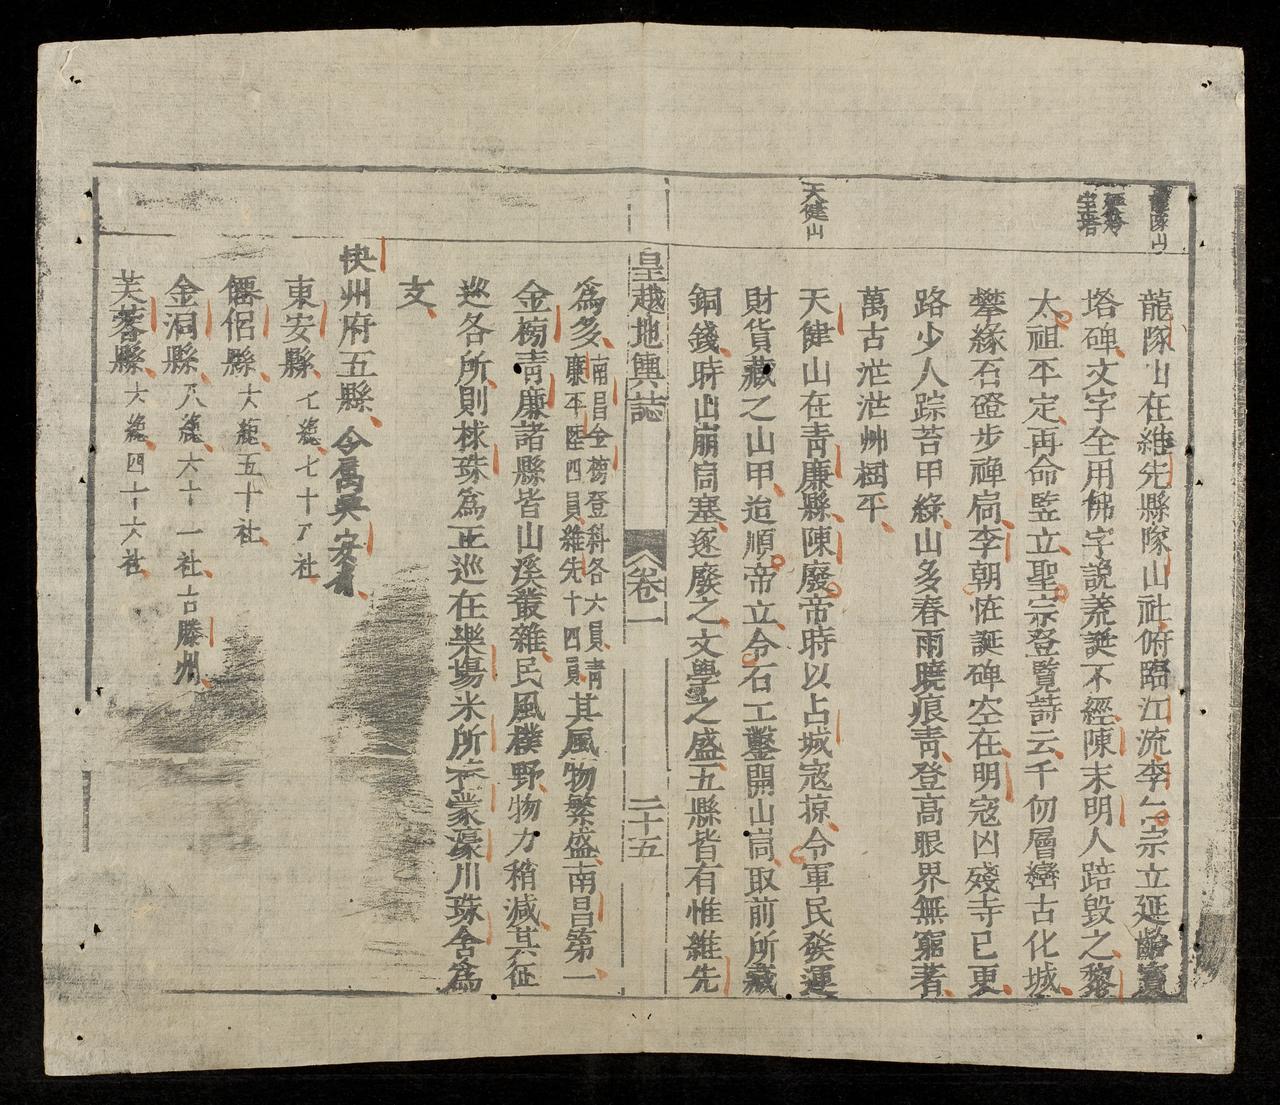 隊山
天健山
龍隊山在維先縣隊山社俯臨江流李仁宗立延齡寶
塔碑文字全用佛字說荒誕不經陳末明人踣毀之黎
太祖平定再命竪立聖宗登覽詩云千仞層巒古化城
攀緣石磴步禅扃李朝恠誕碑空在明寇凶殘寺已更
路少人踪苔甲綠山多春雨曉痕青登高眼界無窮著
萬古茫茫艸樹平
天健山在青廉縣陳廢帝時以占城寇掠令軍民發運
財貨藏之山甲迨順帝立令石工鑿開山峝取前所藏
銅錢時山崩峝塞遂廢之文學之盛五縣皆有惟維先
皇越地輿誌 卷一 二十五
為多南昌金榜登科各六員青
廉平陸四員維先十四員其風物繁盛南昌第一
金榜青廉諸縣皆山溪叢雜民風樸野物力稍減其征
巡各所則梂珠為正巡在樂塲米所 蒙濠川珠舍為
支
快州府五縣今屬興安省
東安縣七總七十八社
僊侶縣六總五十社
金洞縣八總六十一社古滕州
芙蕃縣六總四十六社